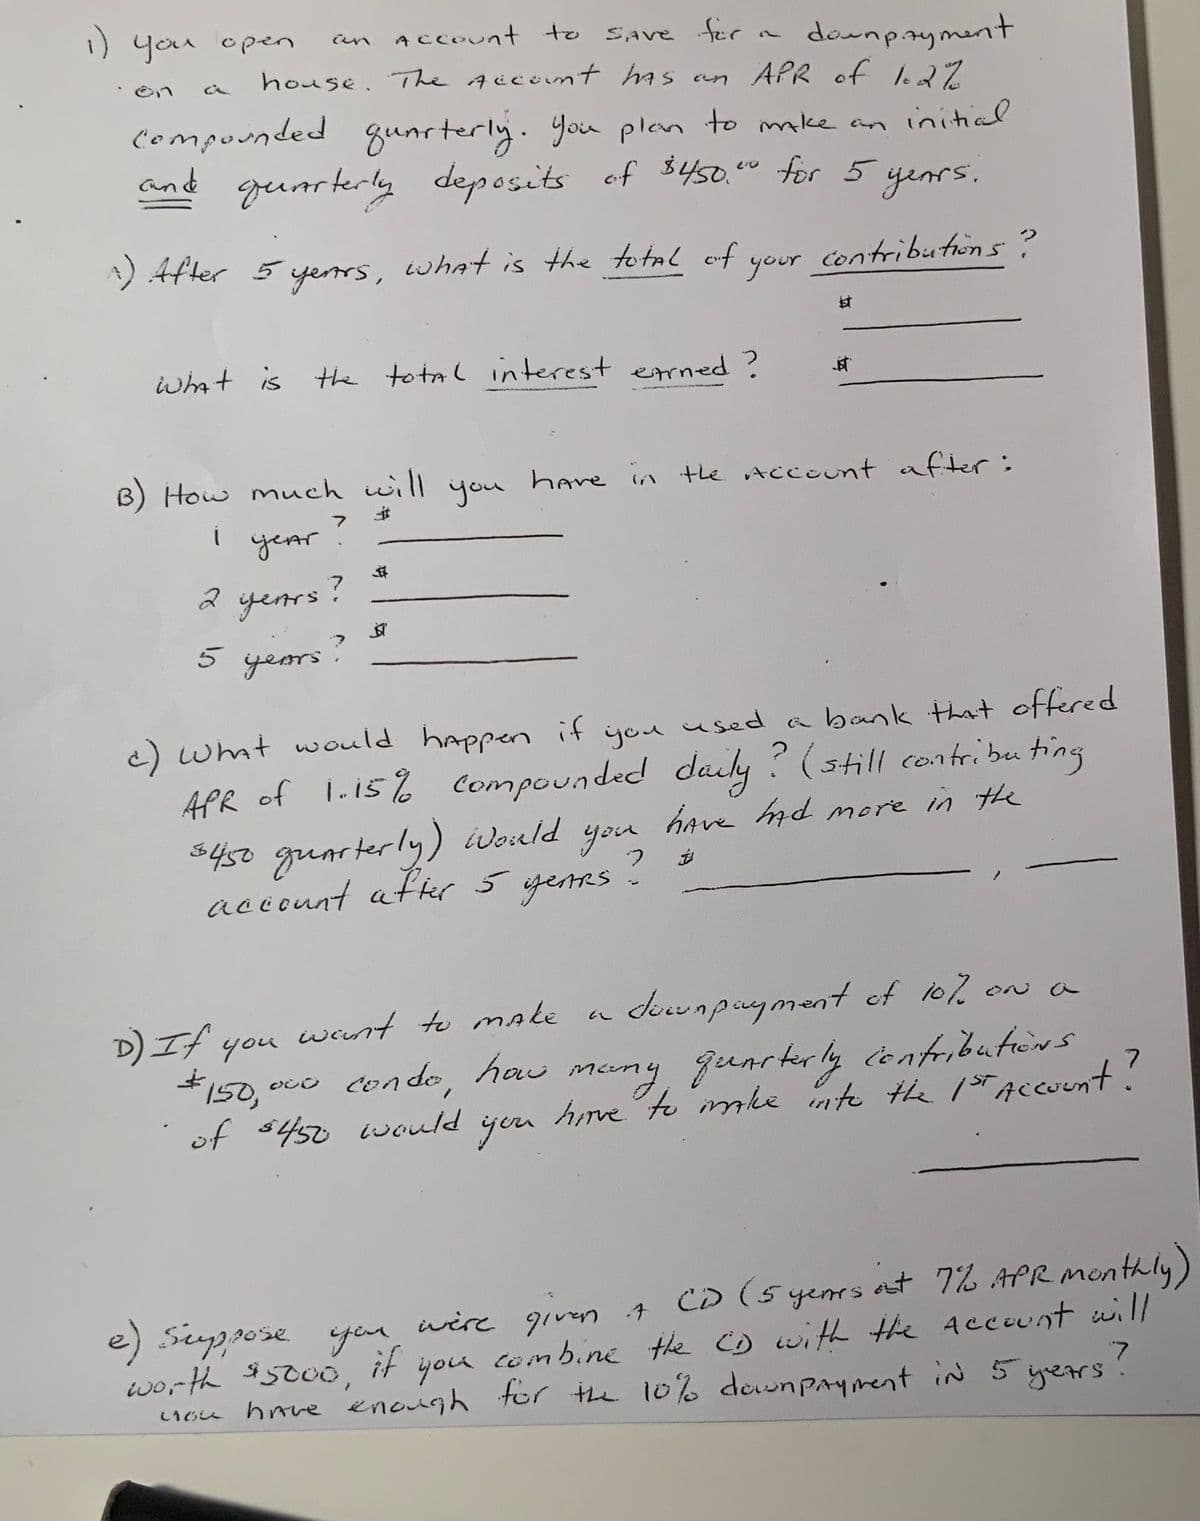 1) you open an Account to SAve for a downpayment
on a house. The Account has an APR of 1.2%
compounded quarterly. You plan to make an initial
and quarterly deposits of $450.00 for 5 years.
A) After 5 years, what is the total of your contributions?
$
What is the total interest earned? $
B) How much will you have in the Account after:
1 year? $
2 years? $
5 years? $
c) What would happen if you used a bank that offered
APR of 1.15% compounded daily? (still contributing
$450 quarterly) Would you have had more in the
account after 5 years? $ ,
D) If you want to make a downpayment of 10% on a
$150,000 condo, how many quarterly contributions
of $450 would you have to make into the 1ST Account?
e) Suppose you were given A CD (5 years at 7% APR monthly)
worth $5000, if you combine the CD with the Account will
you have enough for the 10% downpayment in 5 years?